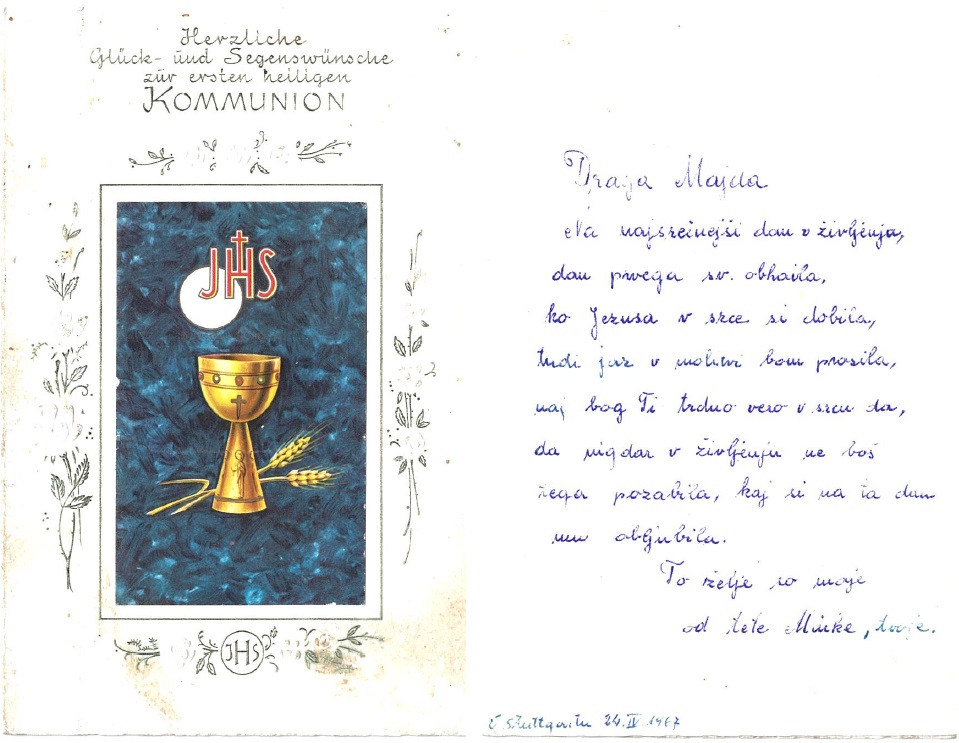 Herzliche
Glück- und Segenswünsche
zur ersten heiligen
KOMMUNION
JHS
JHS
Draga Majda
Na najsrečnejši dan v življenja,
dan prvega sv. obhaila,
ko Jezusa v srce si dobila,
tudi jaz v molitvi bom prosila,
naj bog Ti trdno vero v srcu da,
da nigdar v življenju ne boš
tega pozabila, kaj si na ta dan
mu obljubila.
To želje so moje
od tete Minke, tvoje.
V Stuttgartu 24.IV.1967